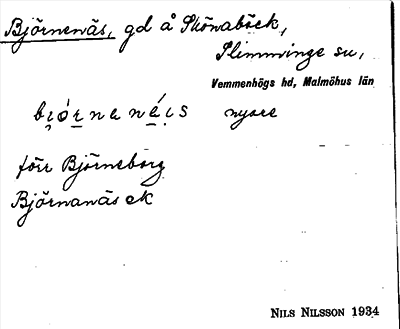 Björnenäs, gd å Skönabäck,
Slimminge sn,
Vemmenhögs hd, Malmöhus län
nyare
förr Björneborg
Björnanäs ek
NILS NILSSON 1934